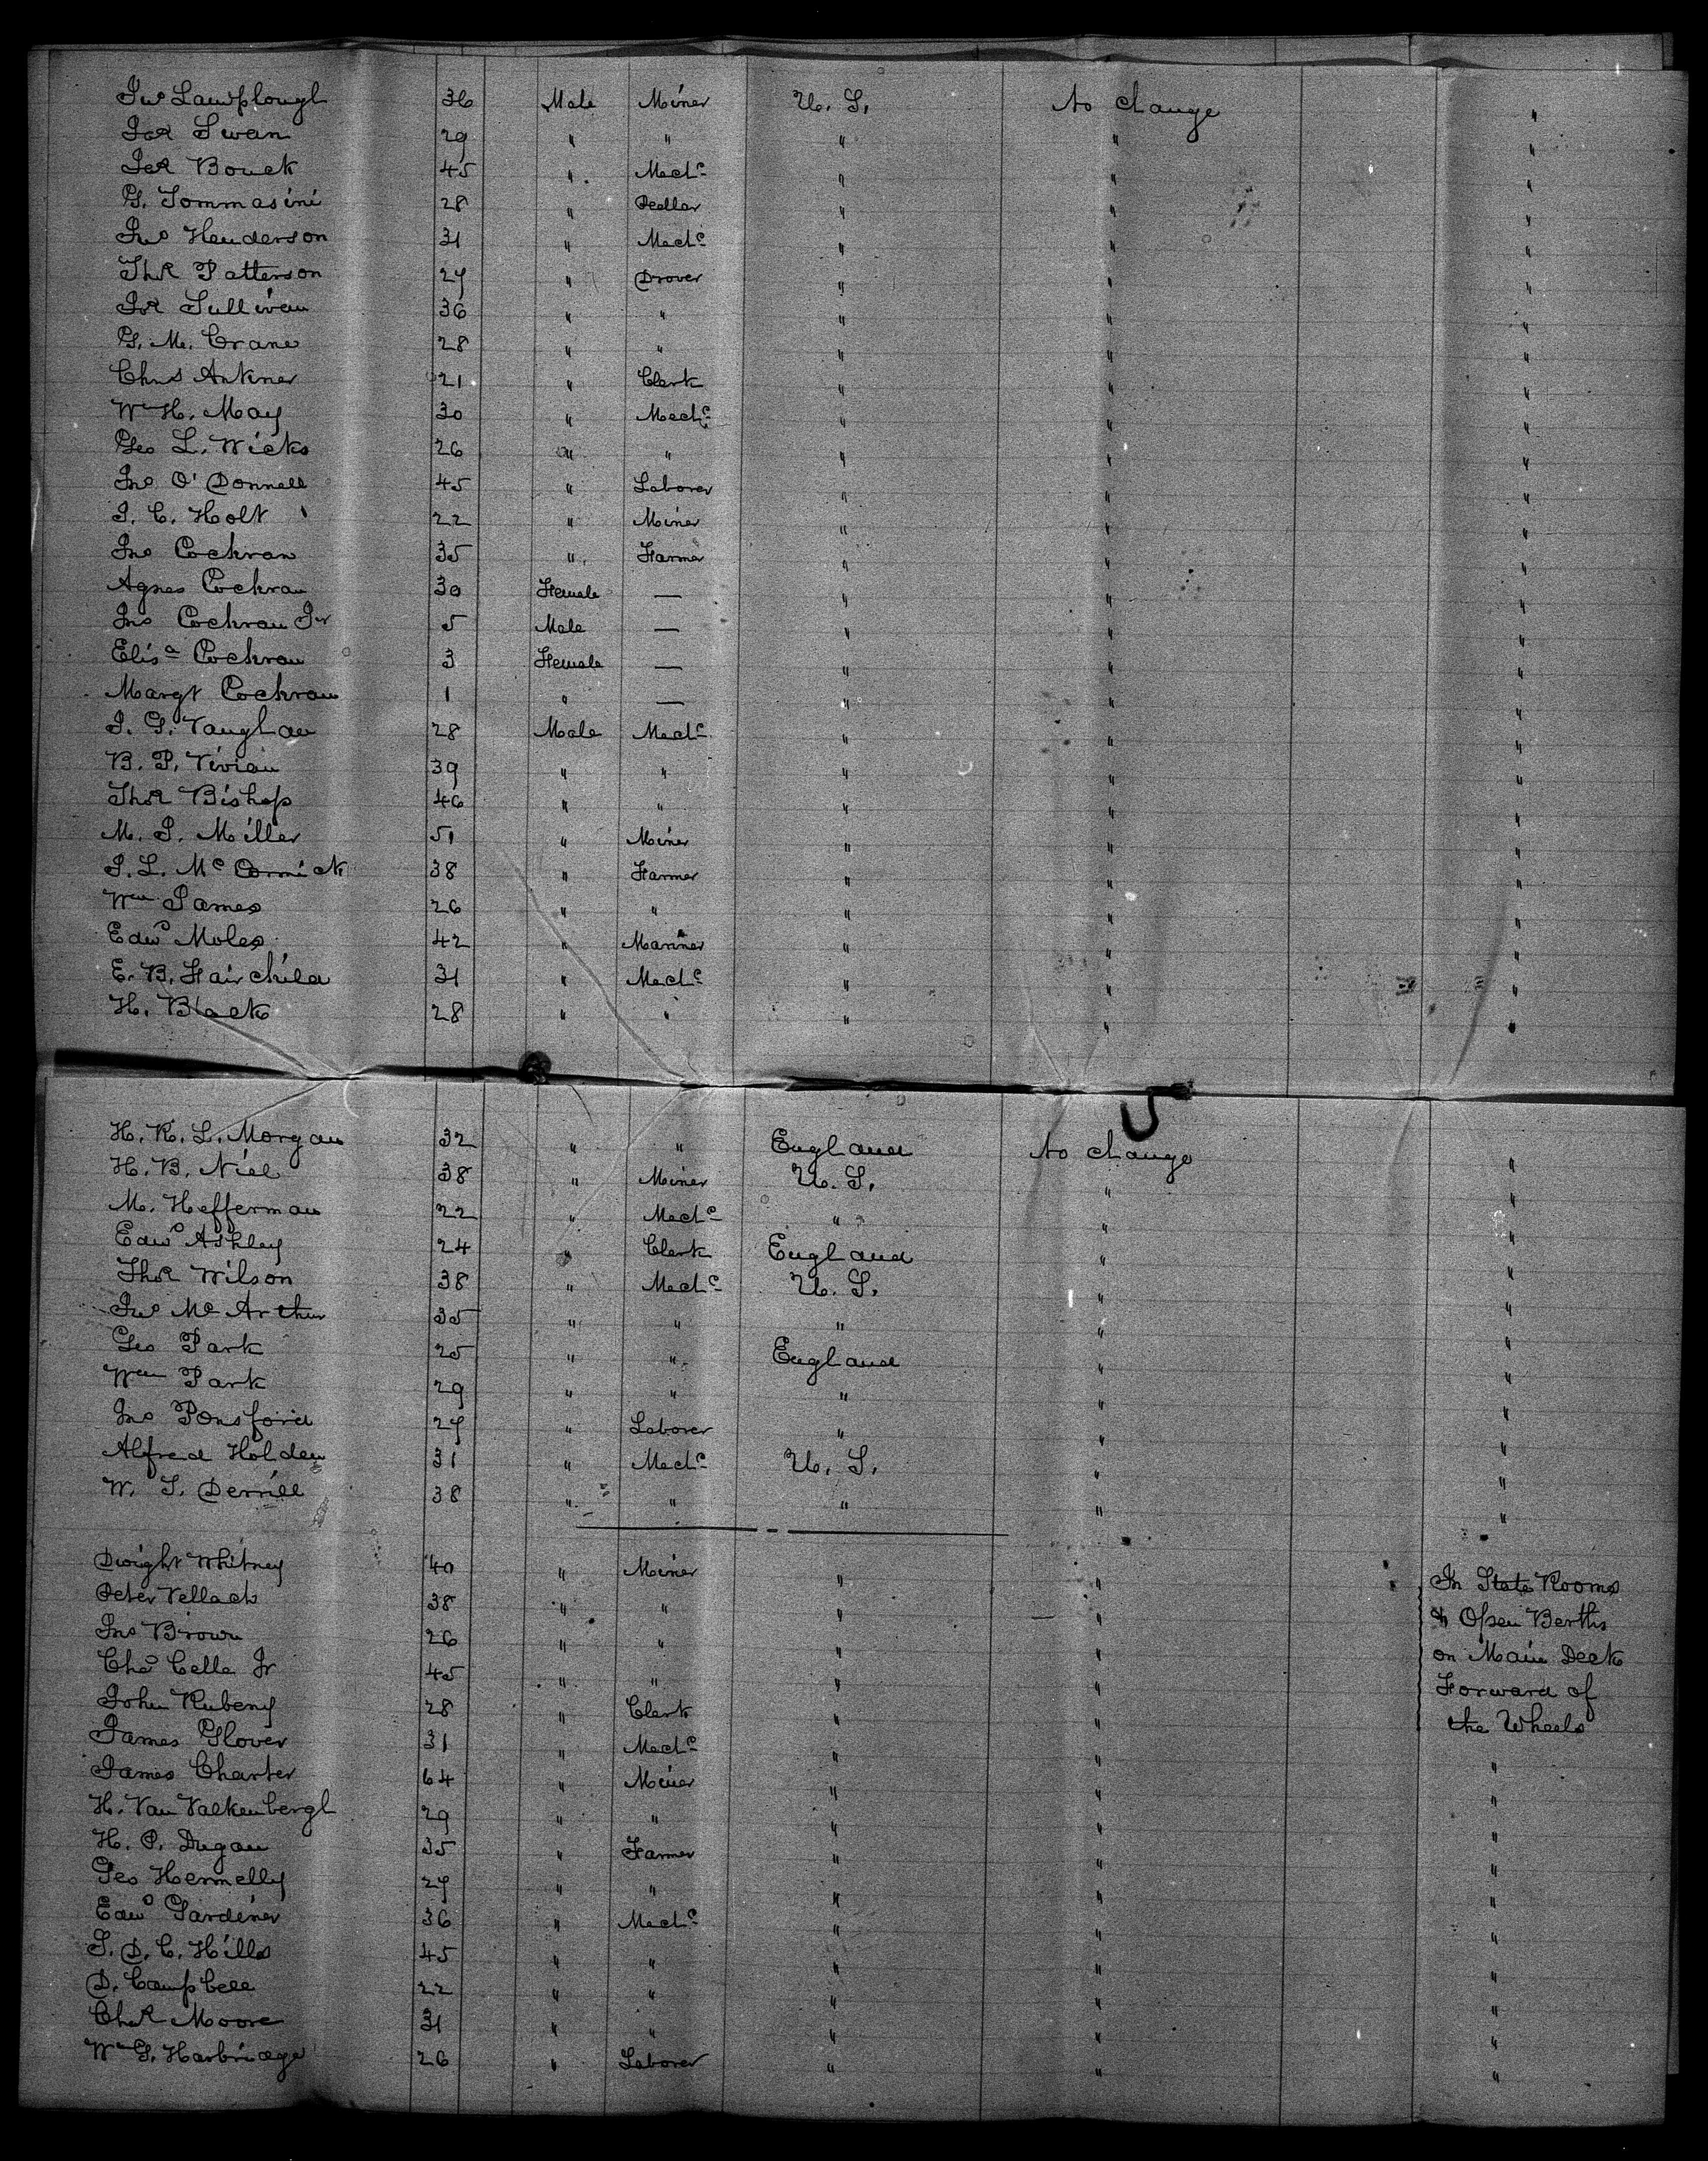 Jno Lamplough 36 Male Miner U. S. No change "
Jas Swan 29 " " " " "
Jas Bouck 45 " Mechc " " "
G. Tommasini 28 " Pedlar " " "
Jno Henderson 31 " Mechc " " "
Thos Patterson 27 " Drover " " "
Jas Sullivan 36 " " " " "
G. M. Crane 28 " " " " "
Chas Ankner 21 " Clerk " " "
Wm H. May 30 " Mechc " " "
Geo L. Wicks 26 " " " " "
Jno O'Donnell 45 " Laborer " " "
J. C. Holt 22 " Miner " " "
Jno Cochran 35 " Farmer " " "
Agnes Cochran 30 Female — " " "
Jno Cochran Jr 5 Male — " " "
Elisa Cochran 3 Female — " " "
Margt Cochran 1 " — " " "
J. G. Vaughan 28 Male Mechc " " "
B. P. Vivian 39 " " " " "
Thos Bishop 46 " " " " "
M. J. Miller 51 " Miner " " "
J. L. McCormick 38 " Farmer " " "
Wm James 26 " " " " "
Edwd Moles 42 " Mariner " " "
E. B. Fairchild 31 " Mechc " " "
H. Black 28 " " " " "
H. K. L. Morgan 32 " " England No change "
H. B. Niel 38 " Miner U. S. " "
M. Hefferman 22 " Mechc " " "
Edwd Ashley 24 " Clerk England " "
Thos Wilson 38 " Mechc U. S. " "
Jno McArthur 35 " " " " "
Geo Park 25 " " England " "
Wm Park 29 " " " " "
Jno Ponsford 27 " Laborer " " "
Alfred Holden 31 " Mechc U. S. " "
W. S. Derrill 38 " " " " "
Dwight Whitney 40 " Miner " " In State Rooms
Peter Vellach 38 " " " " & Open Berths
Jno Brown 26 " " " " on Main Deck
Chas Celle Jr 45 " " " " Forward of
John Rubeny 28 " Clerk " " the Wheels
James Glover 31 " Mechc " " "
James Charter 64 " Miner " " "
H. Van Valkenbergh 29 " " " " "
H. P. Dugan 35 " Farmer " " "
Geo Hennelly 27 " " " " "
Edwd Gardiner 36 " Mechc " " "
S. D. C. Hills 45 " " " " "
D. Campbell 22 " " " " "
Chas Moore 31 " " " " "
Wm G. Harbridge 26 " Laborer " " "